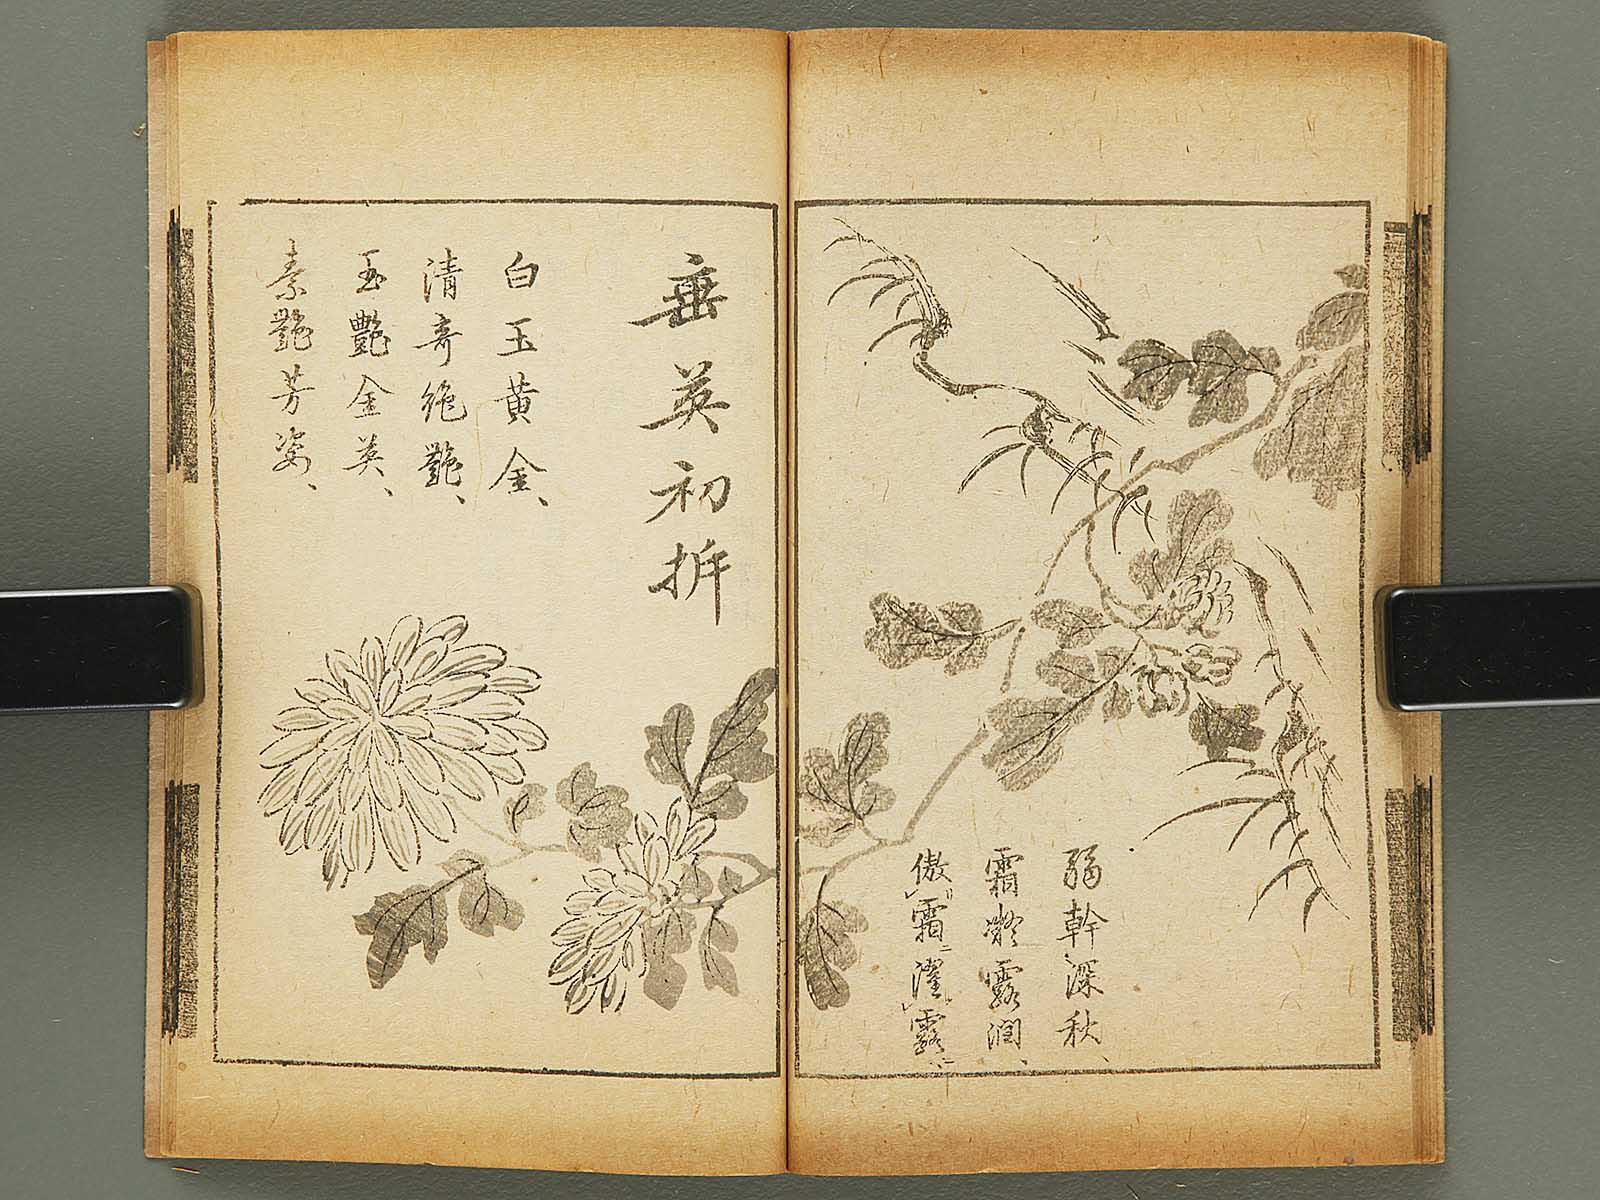 弱幹深秋、
霜凝露潤、
傲霜濯露
垂英初拆
白玉黄金、
清奇絶艶、
玉艶金英、
素艶芳姿、